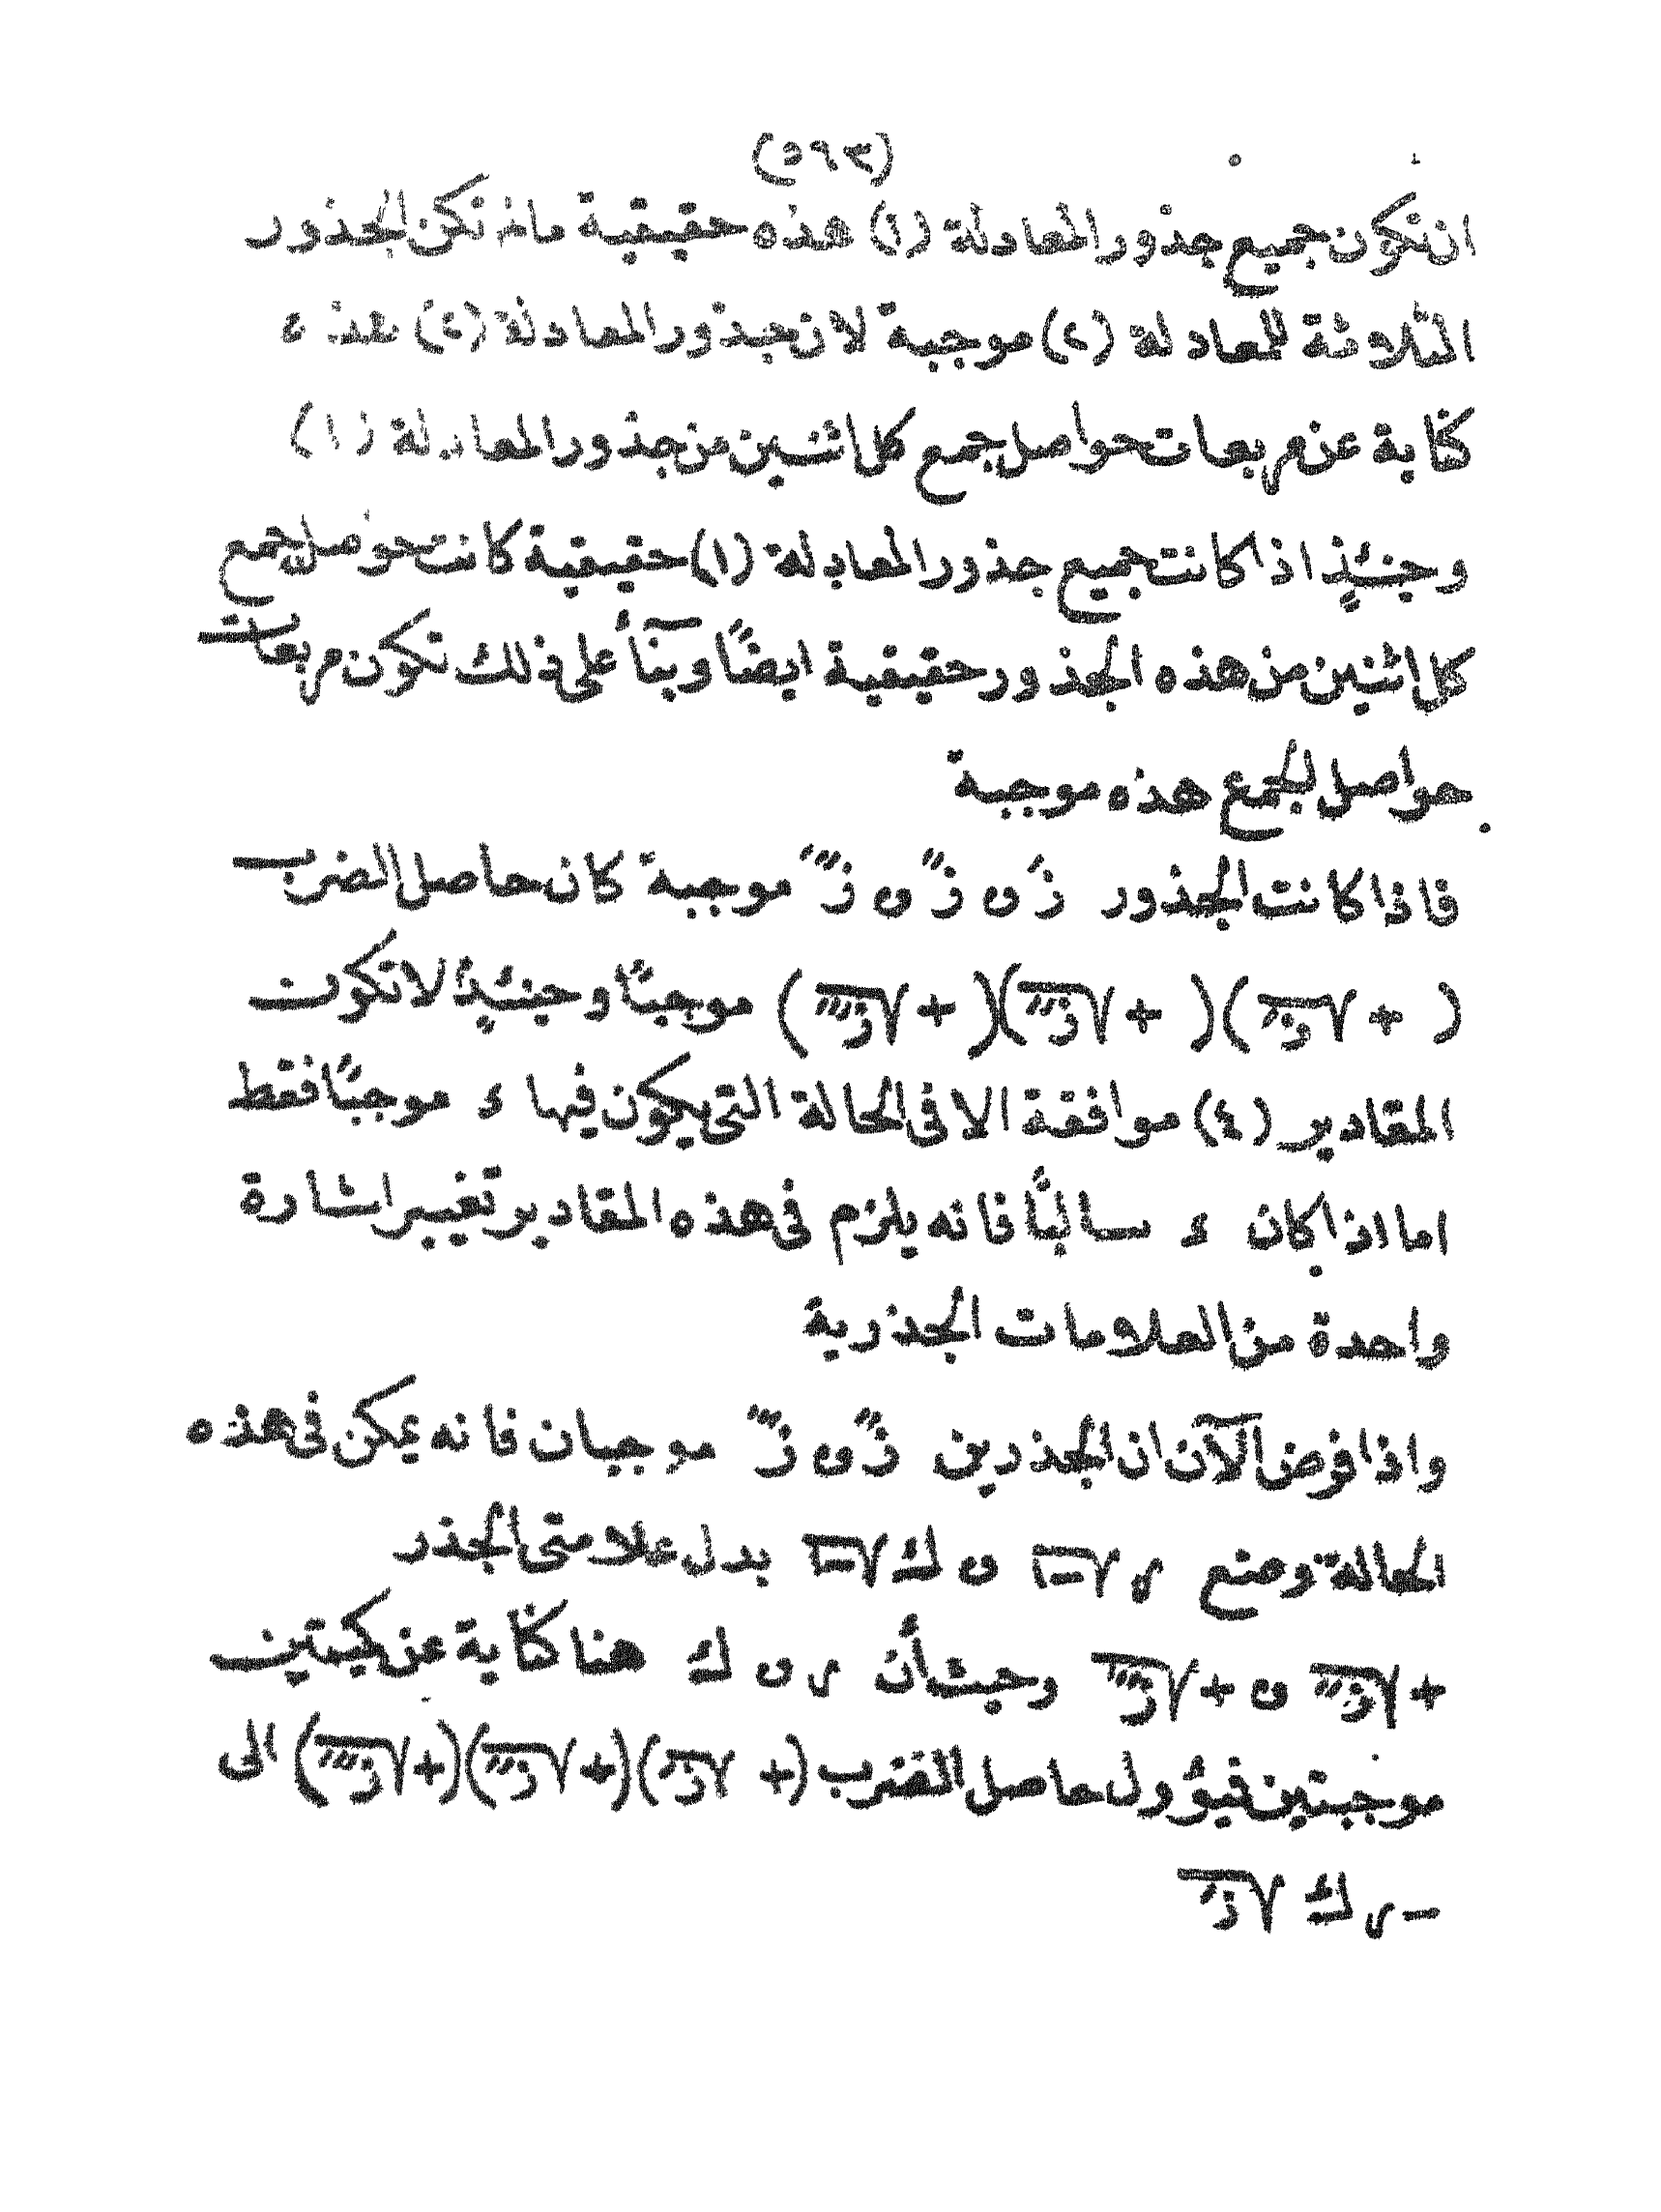 (٥٩٣)
ان تكون جميع جذور المعادلة (١) هذه حقيقية مالم تكن الجذور
الثلاثة للمعادلة (٢) موجبة لان جذور المعادلة (٢)
كناية عن مربعات حواصل جمع كل اثنين من جذور المعادلة (١)
وحينئذٍ اذا كانت جميع جذور المعادلة (١) حقيقية كانت حواصل جمع
كل اثنين من هذه الجذور حقيقية ايضًا وبنآءً على ذلك تكون مربعات
حواصل الجمع هذه موجبة
فاذا كانت الجذور زَ و زً و زًَ موجبة كان حاصل الضرب
( + √زَ )( + √زً )( + √زًَ ) موجبًا وحينئذٍ لا تكون
المقادير (٤) موافقة الا فى الحالة التى يكون فيها ء موجبًا فقط
اما اذا كان ء سالبًا فانه يلزم فى هذه المقادير تغيير اشارة
واحدة من العلامات الجذرية
واذا فرض الآن ان الجذرين زً و زًَ موجبان فانه يمكن فى هذه
الحالة وضع م √-١ و ك √-١ بدل علامتى الجذر
+ √زً و + √زًَ وحيث أن م و ك هنا كناية عن كميتين
موجبتين فيؤول حاصل الضرب (+ √زَ)(+ √زً)(+ √زًَ) الى
- م ك √زَ